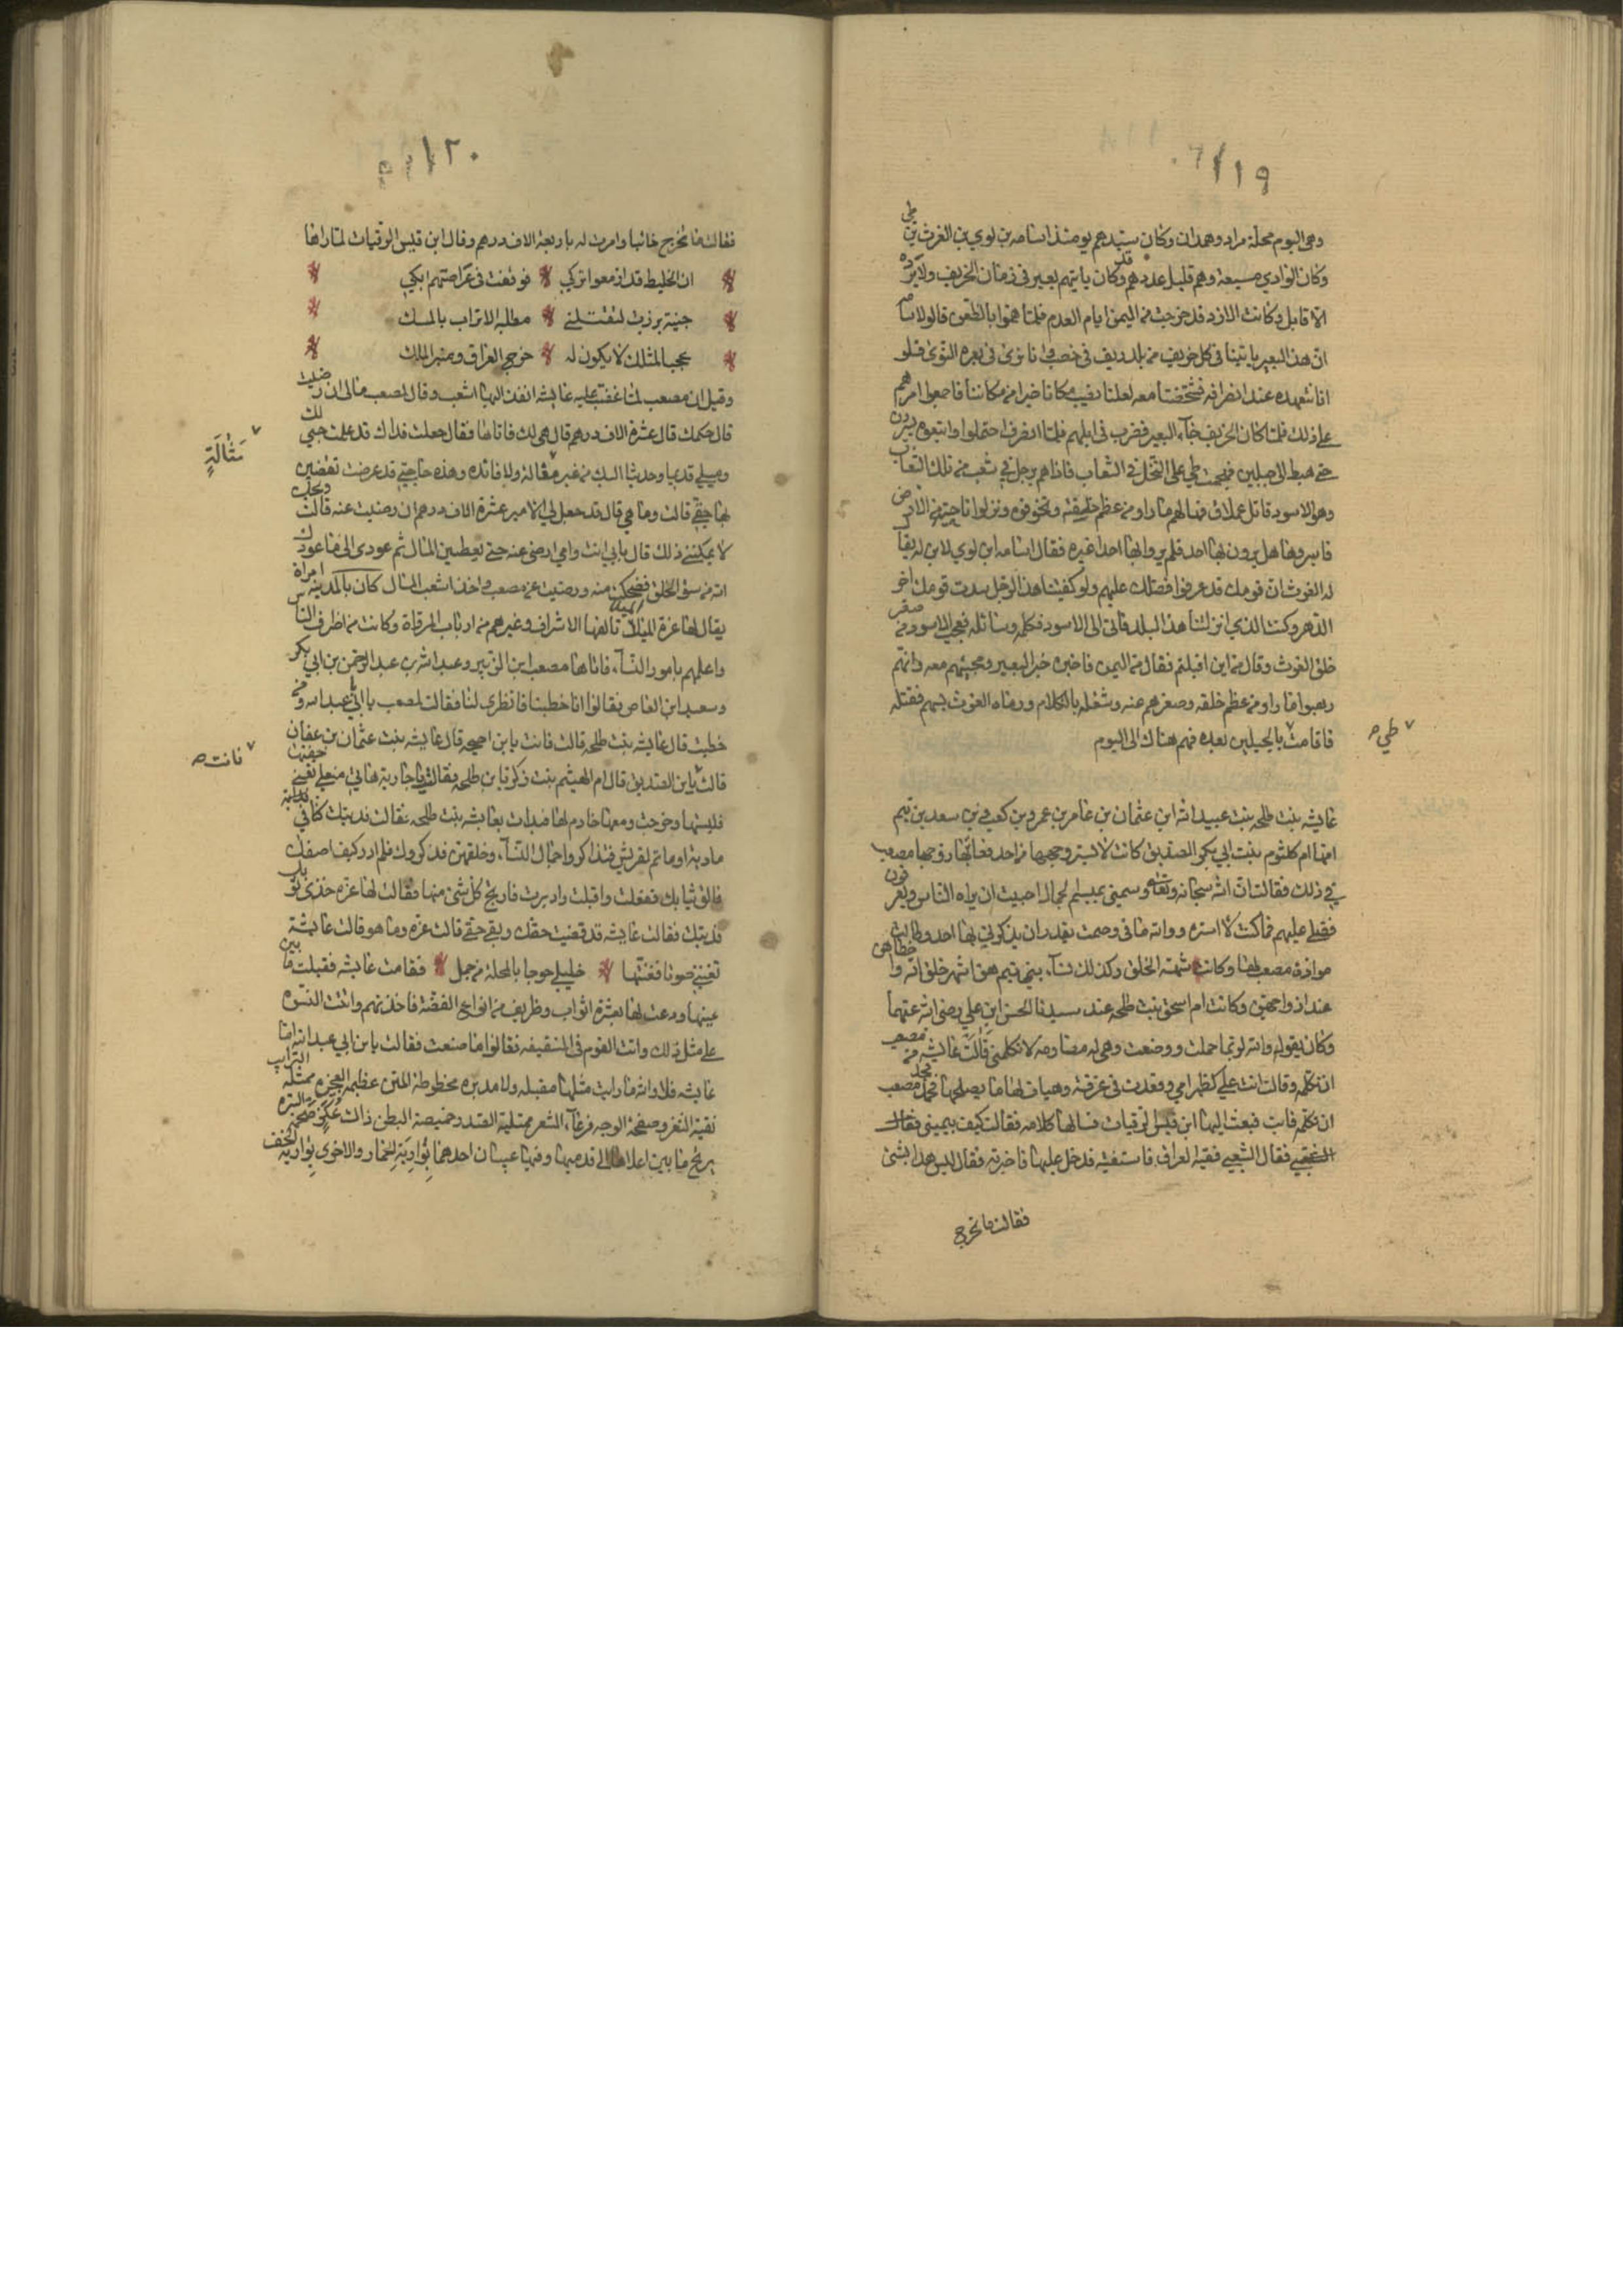 ١١٩
وهى اليوم محلة مراد وهمدان وكان سيدهم يومئذ اسامه بن لوي بن الغوث بن طي
وكان الوادي مسبعة وهم قليل عددهم وكان ياتيهم بعير فى زمان الخريف ولا يره
الا قابل وكانت الازد قد خرجت من اليمن ايام العرم فلما هموا بالظعن قالوا
ان هذا البعير ياتينا فى كل خريف من بلد ريف فى خصب فانا نرى فى بعره النوى فلو
انا نتعهده عند انصرافه فشخصنا معه لعلنا نصيب مكانا خيرا من مكاننا فاجمعوا امرهم
على ذلك فلما كان الخريف جاء البعير فضرب فى ابلهم فلما انصرف احتملوا واتبعوه يسيرون
حتى هبط الى جبلين فهجمت طي على النخل فى الشعاب فاذا هم برجل في شعب من تلك الشعاب
وهو الاسود قاتل عملاق فهالهم ما راو من عظم خلقته وتخوفوه ونزلوا ناحية من الارض
فاسروها هل يرون بها احد فلم يروا بها احدا غيره فقال اسامه ابن لوي لابن له يقال
له الغوث ان قومك قد عرفوا فضلك عليهم ولو كفيتنا هذا الرجل سدت قومك اخر
الدهر وكنت الذي انزلتنا هذا البلد فاتى الى الاسود فكلمه وسائله فعجب الاسود من صغر
خلق الغوث وقال من اين اقبلتم فقال من اليمن فاخبره خبر البعير ومجيئهم معه وانهم
رهبوا ما راو من عظم خلقه وصغرهم عنه وشغله بالكلام ورماه الغوث بسهم فقتله
فاقامت بالجبلين بعده فهم هناك الى اليوم
طي صح
عايشه بنت طلحه بنت عبيد الله ابن عثمان بن عامر بن عمرو بن كعب بن سعد بن تيم
امها ام كلثوم بنت ابي بكر الصديق كانت لا تستر وجهها من احد فعاتبها زوجها مصعب
في ذلك فقالت ان الله سبحانه وتعالى وسمني بميسم لجمال احببت ان يراه الناس ويعرفون
فضلي عليهم فما كنت لا استره ووالله ما في وصمت يقدر ان يذكرني بها احد وطالت
موادة مصعب لها وكانت شهمة الخلق وكذلك نساء بني تيم هن اشهر خلق الله واحظاهن
عند ازواجهن وكانت ام اسحق بنت طلحه عند سيدنا الحسن ابن علي رضى الله عنهما
وكان يقول والله لربما حملت ووضعت وهى لي مصارمة لا تكلمني قالت عايشه من مصعب
ان تكلمه وقالت انت علي كظهر امي وقعدت فى غرفة وهيات لها ما يصلحها فجهد مصعب
ان تكلمه فابت فبعث اليها ابن قيس الرقيات فسالها كلامه فقالت كيف بيميني فقال
الشعبي فقال الشعبي فقيه العراق فاستفتيه فدخل عليها فاخبرته فقال ليس هذا بشئ
فقالت ما تخرج
١٢٠
فقالت ما تخرج خائبا وامرت له باربعة الاف درهم وقال ابن قيس الرقيات لما راها
ان الخليط قد ازمعوا تركي فوقفت فى عراصتهم ابكي
جنية برزت لتقتلني مطلية الاتراب بالمسك
عجبا لمثلك لا يكون له خرج العراق ومنبر الملك
وقيل ان مصعب لما غضبت عليه عايشه انفذ اليها اشعب وقال لمصعب مالي ان رضيت
قال حكمك قال عشرة الاف درهم قال هى لك فاتاها فقال جعلت فداك قد علمت حبي لك
وميلي قديما وحديثا اليك من غير مثالة ولا فائده وهذه حاجتي قد عرضت تقضين
مثالة
بها حقي قالت وما هي قال قد جعل لي الامير عشرة الاف درهم ان رضيت عنه قالت ويحك
لا يمكنني ذلك قال بابي انت وامي ارضى عنه حتى يعطين المال ثم عودى الى ما عودك
الله من سؤ الخلق فضحكت منه ورضيت عن مصعب واخذ اشعب المال كان بالمدينه امراة
يقال لها عزة الميلاء تالفها الاشراف وغيرهم من ارباب المرؤاة وكانت من اظرف الناس
واعلمهم بامور النساء فاتاها مصعب ابن الزبير وعبد الله بن عبد الرحمن بن ابي بكر
وسعيد ابن العاص فقالوا انا خطبنا فانظرى لنا فقالت لمصعب يا ابن ابي عبد الله ومن
خطبت قال عايشه بنت طلحه قالت فانت يا بن احيحه قال عايشه بنت عثمان بن عفان
فانت صح
قالت يا بن الصديق قال ام الهيثم بنت زكريا بن طلحه فقالت يا جارية هاتي منعلي تعني خفيها
فلبستهما وخرجت ومعها خادم لها فبدات بعايشه بنت طلحه فقالت فديتك كنا في
مادبة او ماتم لقريش فتذاكروا جمال النساء وخلقهن فذكروك فلم ادر كيف اصفك
فالق ثيابك ففعلت واقبلت وادبرت فارتج كل شئ منها فقالت لها عزه خذي ثوبك
فديتك فقالت عايشه قد قضيت حقك وبقي حقي قالت عزه وما هو قالت عايشة
تغنيني صوتا فغنتها خليلي عوجا بالمحلة من جمل فقامت عايشه فقبلت ما بين
عينيها ودعت لها بعشرة اثواب وظريف من انواع الفضة فاخذتهم واتت النسوه
على مثل ذلك واتت القوم فى السقيفه فقالوا ما صنعت فقالت يا بن ابي عبد الله اما
عايشه فلا والله ما رايت مثلها مقبله ولا مدبره محطوطة المتن عظيمة العجز ممتلة الترايب
نقية الثغر وصفحة الوجه فرعاء الشعر ممتلية الصدر خميصة البطن ذات عكن ضخمة السره
يرتج ما بين اعلاها الى قدميها وفيها عيبان احدهما يواريه الخمار والاخرى يواريه الخف